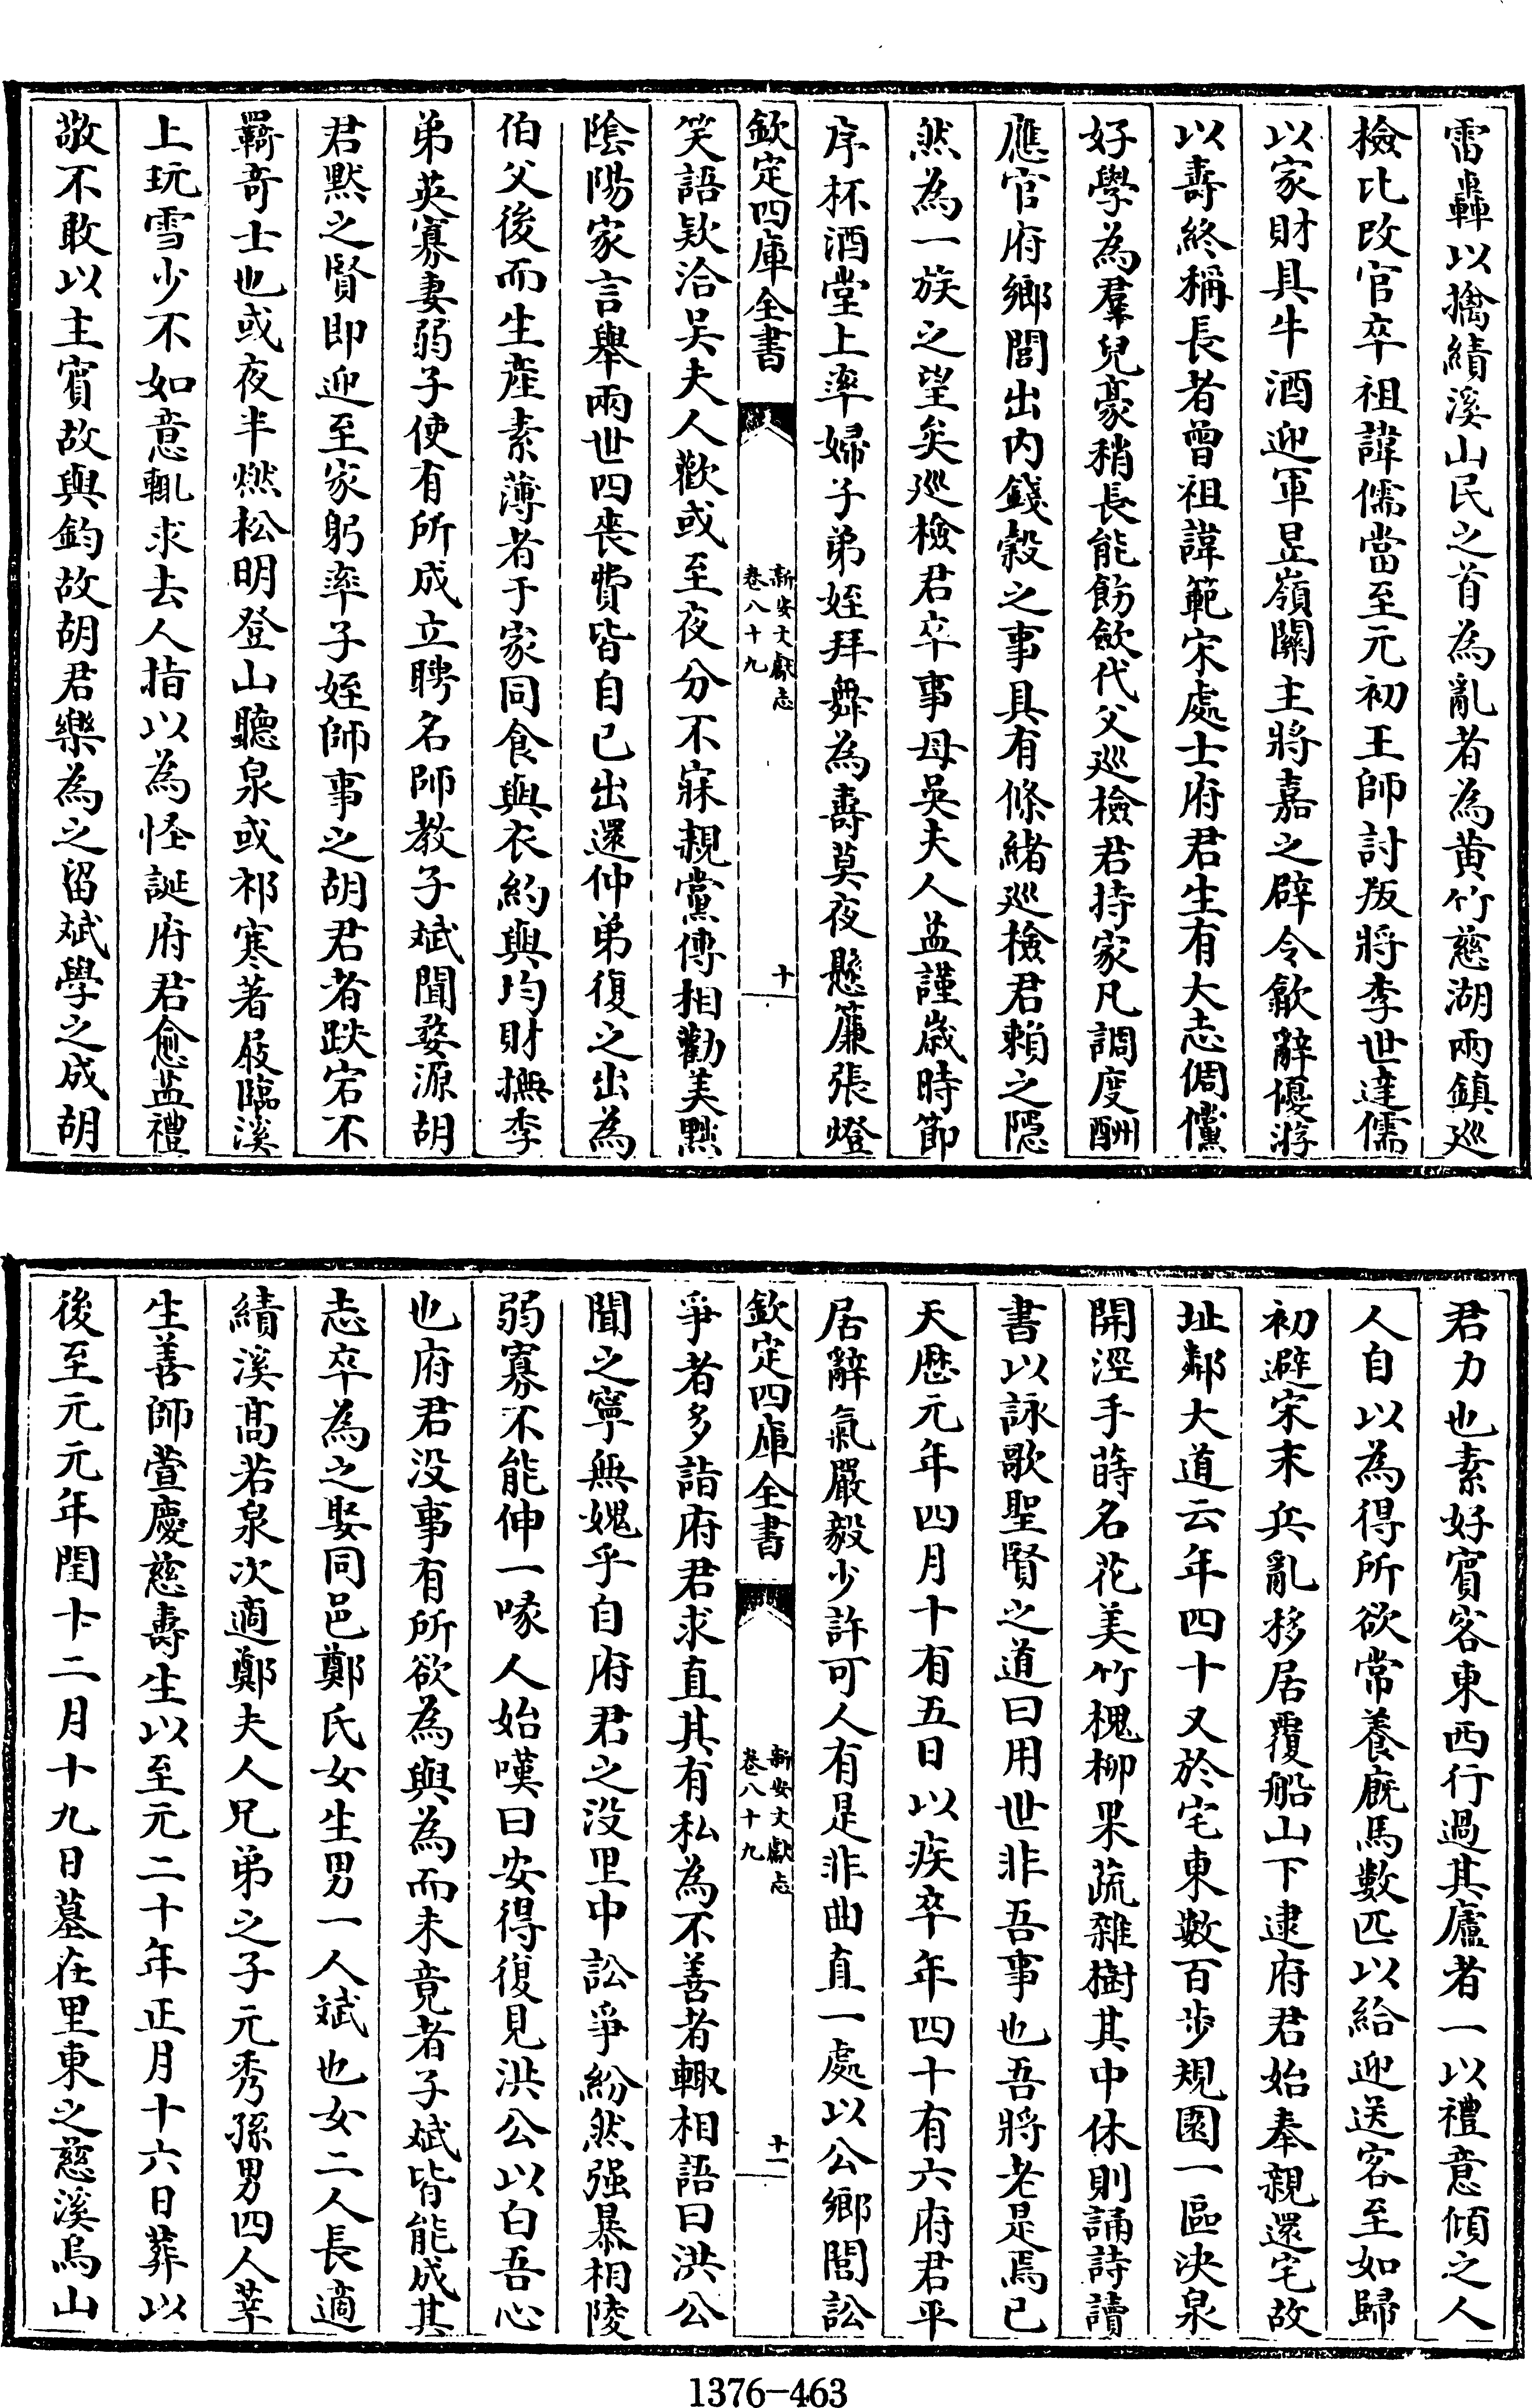 雷轟以擒績溪山民之首為亂者為黄竹慈湖兩鎮巡
檢比改官卒祖諱儒當至元初王師討叛將李世達儒
以家財具牛酒迎軍昱嶺關主將嘉之辟令歙辭優游
以壽終稱長者曾祖諱範宋處士府君生有大志倜儻
好學為羣兒豪稍長能飭歛代父巡檢君持家凡調度酬
應官府鄉閭出内錢榖之事具有條緒巡檢君賴之隱
然為一族之望矣巡檢君卒事母吳夫人益謹歲時節
序杯酒堂上率婦子弟姪拜舞為壽莫夜懸簾張燈
欽定四庫全書
新安文獻志
卷八十九
十
笑語欵洽吳夫人歡或至夜分不寐親黨傳相勸美黜
陰陽家言舉兩世四喪費皆自已出還仲弟復之出為
伯父後而生産素薄者于家同食與衣約與均財撫季
弟英寡妻弱子使有所成立聘名師教子斌聞婺源胡
君黙之賢即迎至家躬率子姪師事之胡君者跌宕不
羈奇士也或夜半燃松明登山聽泉或祁寒著屐臨溪
上玩雪少不如意輒求去人指以為怪誕府君愈益禮
敬不敢以主賓故與鈞故胡君樂為之留斌學之成胡
君力也素好賓客東西行過其廬者一以禮意傾之人
人自以為得所欲常養廐馬數匹以給迎送客至如歸
初避宋末兵亂移居覆船山下逮府君始奉親還宅故
址鄰大道云年四十又於宅東數百步規園一區決泉
開逕手蒔名花美竹槐柳果蔬雜樹其中休則誦詩讀
書以詠歌聖賢之道曰用世非吾事也吾將老是焉已
天歴元年四月十有五日以疾卒年四十有六府君平
居辭氣嚴毅少許可人有是非曲直一處以公鄉閭訟
欽定四庫全書
新安文獻志
卷八十九
十一
爭者多詣府君求直其有私為不善者輙相語曰洪公
聞之寧無媿乎自府君之没里中訟爭紛然强暴相陵
弱寡不能伸一喙人始嘆曰安得復見洪公以白吾心
也府君没事有所欲為與為而未竟者子斌皆能成其
志卒為之娶同邑鄭氏女生男一人斌也女二人長適
績溪髙若泉次適鄭夫人兄弟之子元秀孫男四人莘
生善師萱慶慈壽生以至元二十年正月十六日葬以
後至元元年閏十二月十九日墓在里東之慈溪烏山
1376-463